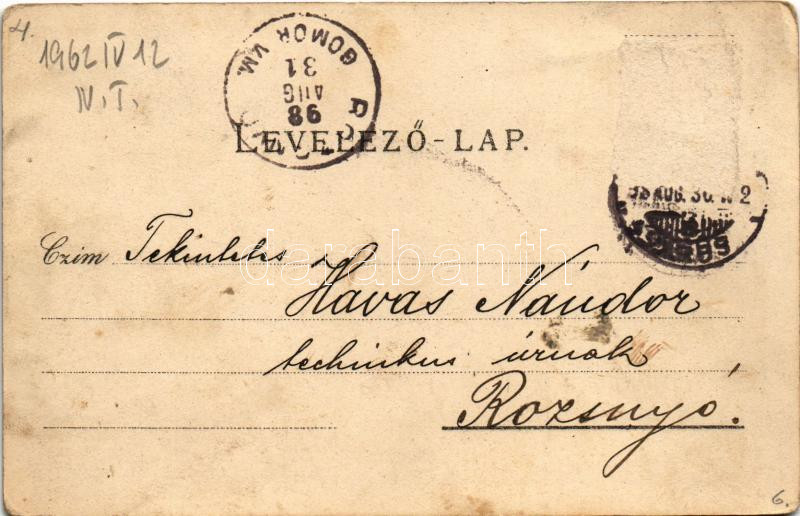 4.
1962 IV 12
N.T.
GÖMÖR VM.
31
AUG
98
LEVELEZŐ-LAP.
98 AUG. 30.
Czim Tekintetes
Havas Nándor
technikus úrnak
Rozsnyó.
6.
darabanth